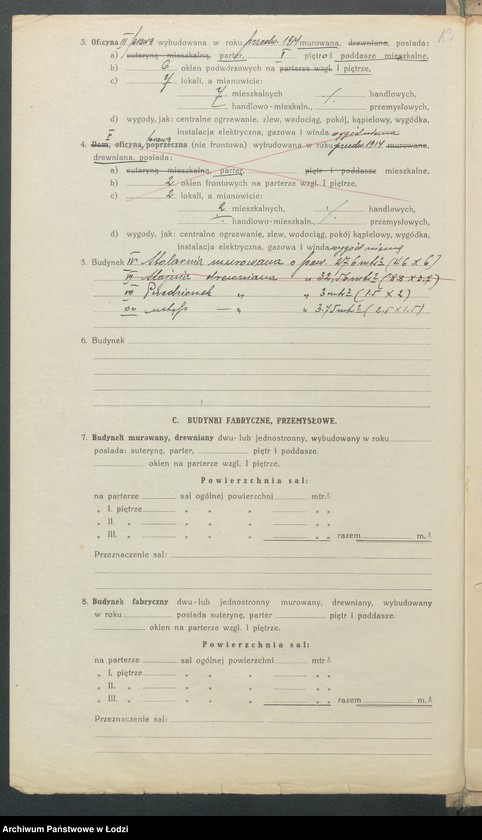 13
3. Oficyna III prawa wybudowana w roku przedw. 1914 murowana, drewniana, posiada:
a) suterynę mieszkalną, parter, I piętro i poddasze mieszkalne,
b) 6 okien podwórzowych na parterze wzgl. I piętrze,
c) 7 lokali, a mianowicie:
7 mieszkalnych ./. handlowych,
handlowo-mieszkaln., przemysłowych,
d) wygody, jak: centralne ogrzewanie, zlew, wodociąg, pokój, kąpielowy, wygódka,
instalacja elektryczna, gazowa i winda
4. Dom, oficyna, poprzeczna (nie frontowa) wybudowana w roku przedw. 1914 murowana,
drewniana, posiada:
a) suterynę mieszkalną, parter, piętr i poddasze mieszkalne,
b) 2 okien frontowych na parterze wzgl. I piętrze,
c) 2 lokali, a mianowicie:
2 mieszkalnych, ./. handlowych,
handlowo-mieszkaln., przemysłowych,
d) wygody, jak: centralne ogrzewanie, zlew, wodociąg, pokój, kąpielowy, wygódka,
instalacja elektryczna, gazowa i winda
5. Budynek IV Stolarnia murowana o pow. 27.6 mt² (4.6 X 6)
drewniana „ 32,56 mt²
„ „ 3 mt² (1.5 X 2)
„ „ 3.75 mt² (2.5 X 1.5)
6. Budynek
C. BUDYNKI FABRYCZNE, PRZEMYSŁOWE.
7. Budynek murowany, drewniany dwu- lub jednostronny, wybudowany w roku
posiada: suterynę, parter, piętr i poddasze.
okien na parterze wzgl. I piętrze.
Powierzchnia sal:
na parterze sal ogólnej powierzchni mtr.²
„ I. piętrze „ „ „ „ „
„ II. „ „ „ „ „ „
„ III. „ „ „ „ „ „ razem m.²
Przeznaczenie sal:
8. Budynek fabryczny dwu- lub jednostronny murowany, drewniany, wybudowany
w roku posiada suterynę, parter piętr i poddasze.
okien na parterze wzgl. I piętrze.
Powierzchnia sal:
na parterze sal ogólnej powierzchni mtr.²
„ I. piętrze „ „ „ „ „
„ II. „ „ „ „ „ „
„ III. „ „ „ „ „ „ razem m.²
Przeznaczenie sal:
Archiwum Państwowe w Łodzi